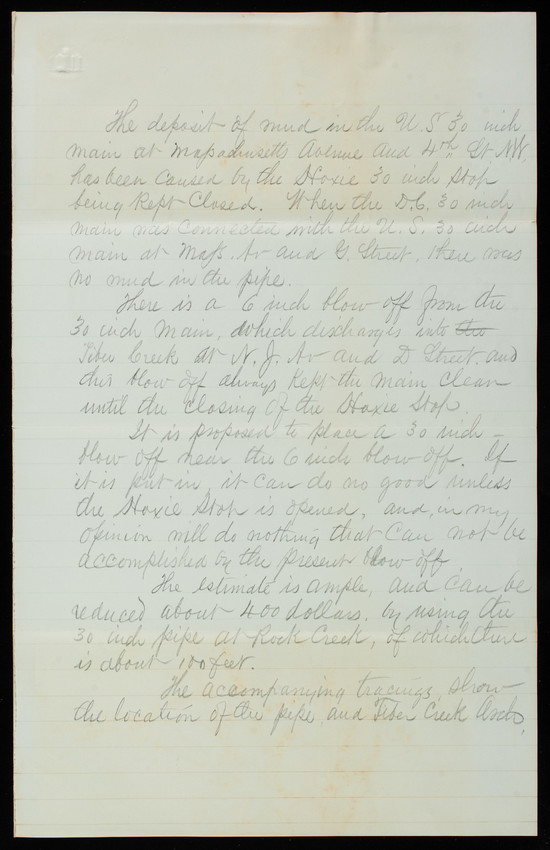 The deposit of mud in the U.S. 30 inch
main at Massachusetts Avenue and 4th St NW.
has been caused by the Hoxie 30 inch Stop
being kept closed. When the D.C. 30 inch
main was connected with the U.S. 30 inch
main at Mass. Av and G Street, there was
no mud in the pipe.
There is a 6 inch blow off from the
30 inch main, which discharges into the
Tiber Creek at N.J. Av and D Street, and
this blow off always kept the main clean
until the closing of the Hoxie Stop.
It is proposed to place a 30 inch
blow off near the 6 inch blow off. If
it is put in, it can do no good unless
the Hoxie Stop is opened, and, in my
opinion will do nothing that can not be
accomplished by the present blow off.
The estimate is ample, and can be
reduced about 400 dollars, by using the
30 inch pipe at Rock Creek, of which there
is about 100 feet.
The accompanying tracings, show
the location of the pipe and Tiber Creek Arch,